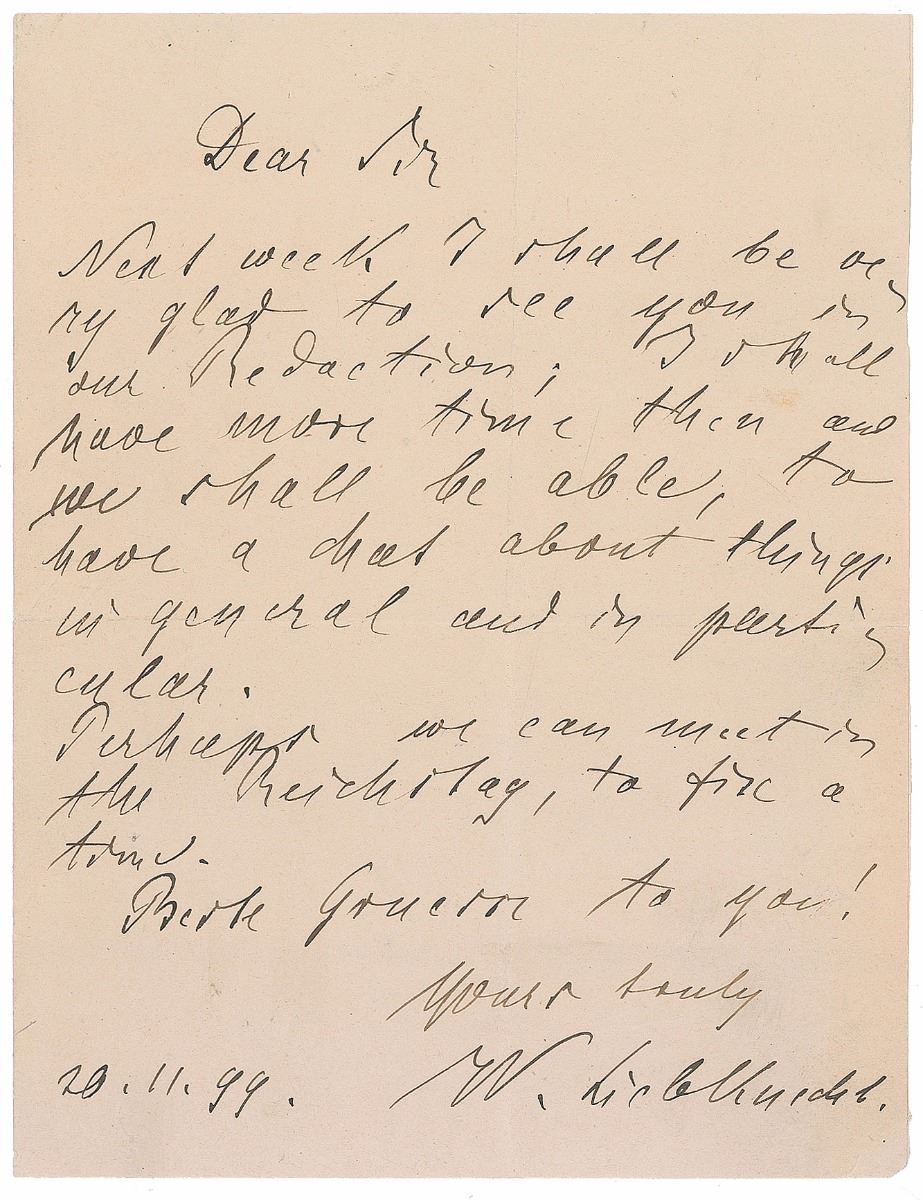 Dear Sir
Next week I shall be ve-
ry glad to see you in
our Redaction; I shall
have more time then and
we shall be able, to
have a chat about things
in general and in parti-
cular.
Perhaps we can meet in
the Reichstag, to fix a
time.
Beste Gruesse to you!
Yours truly
20.11.99. W. Liebknecht.